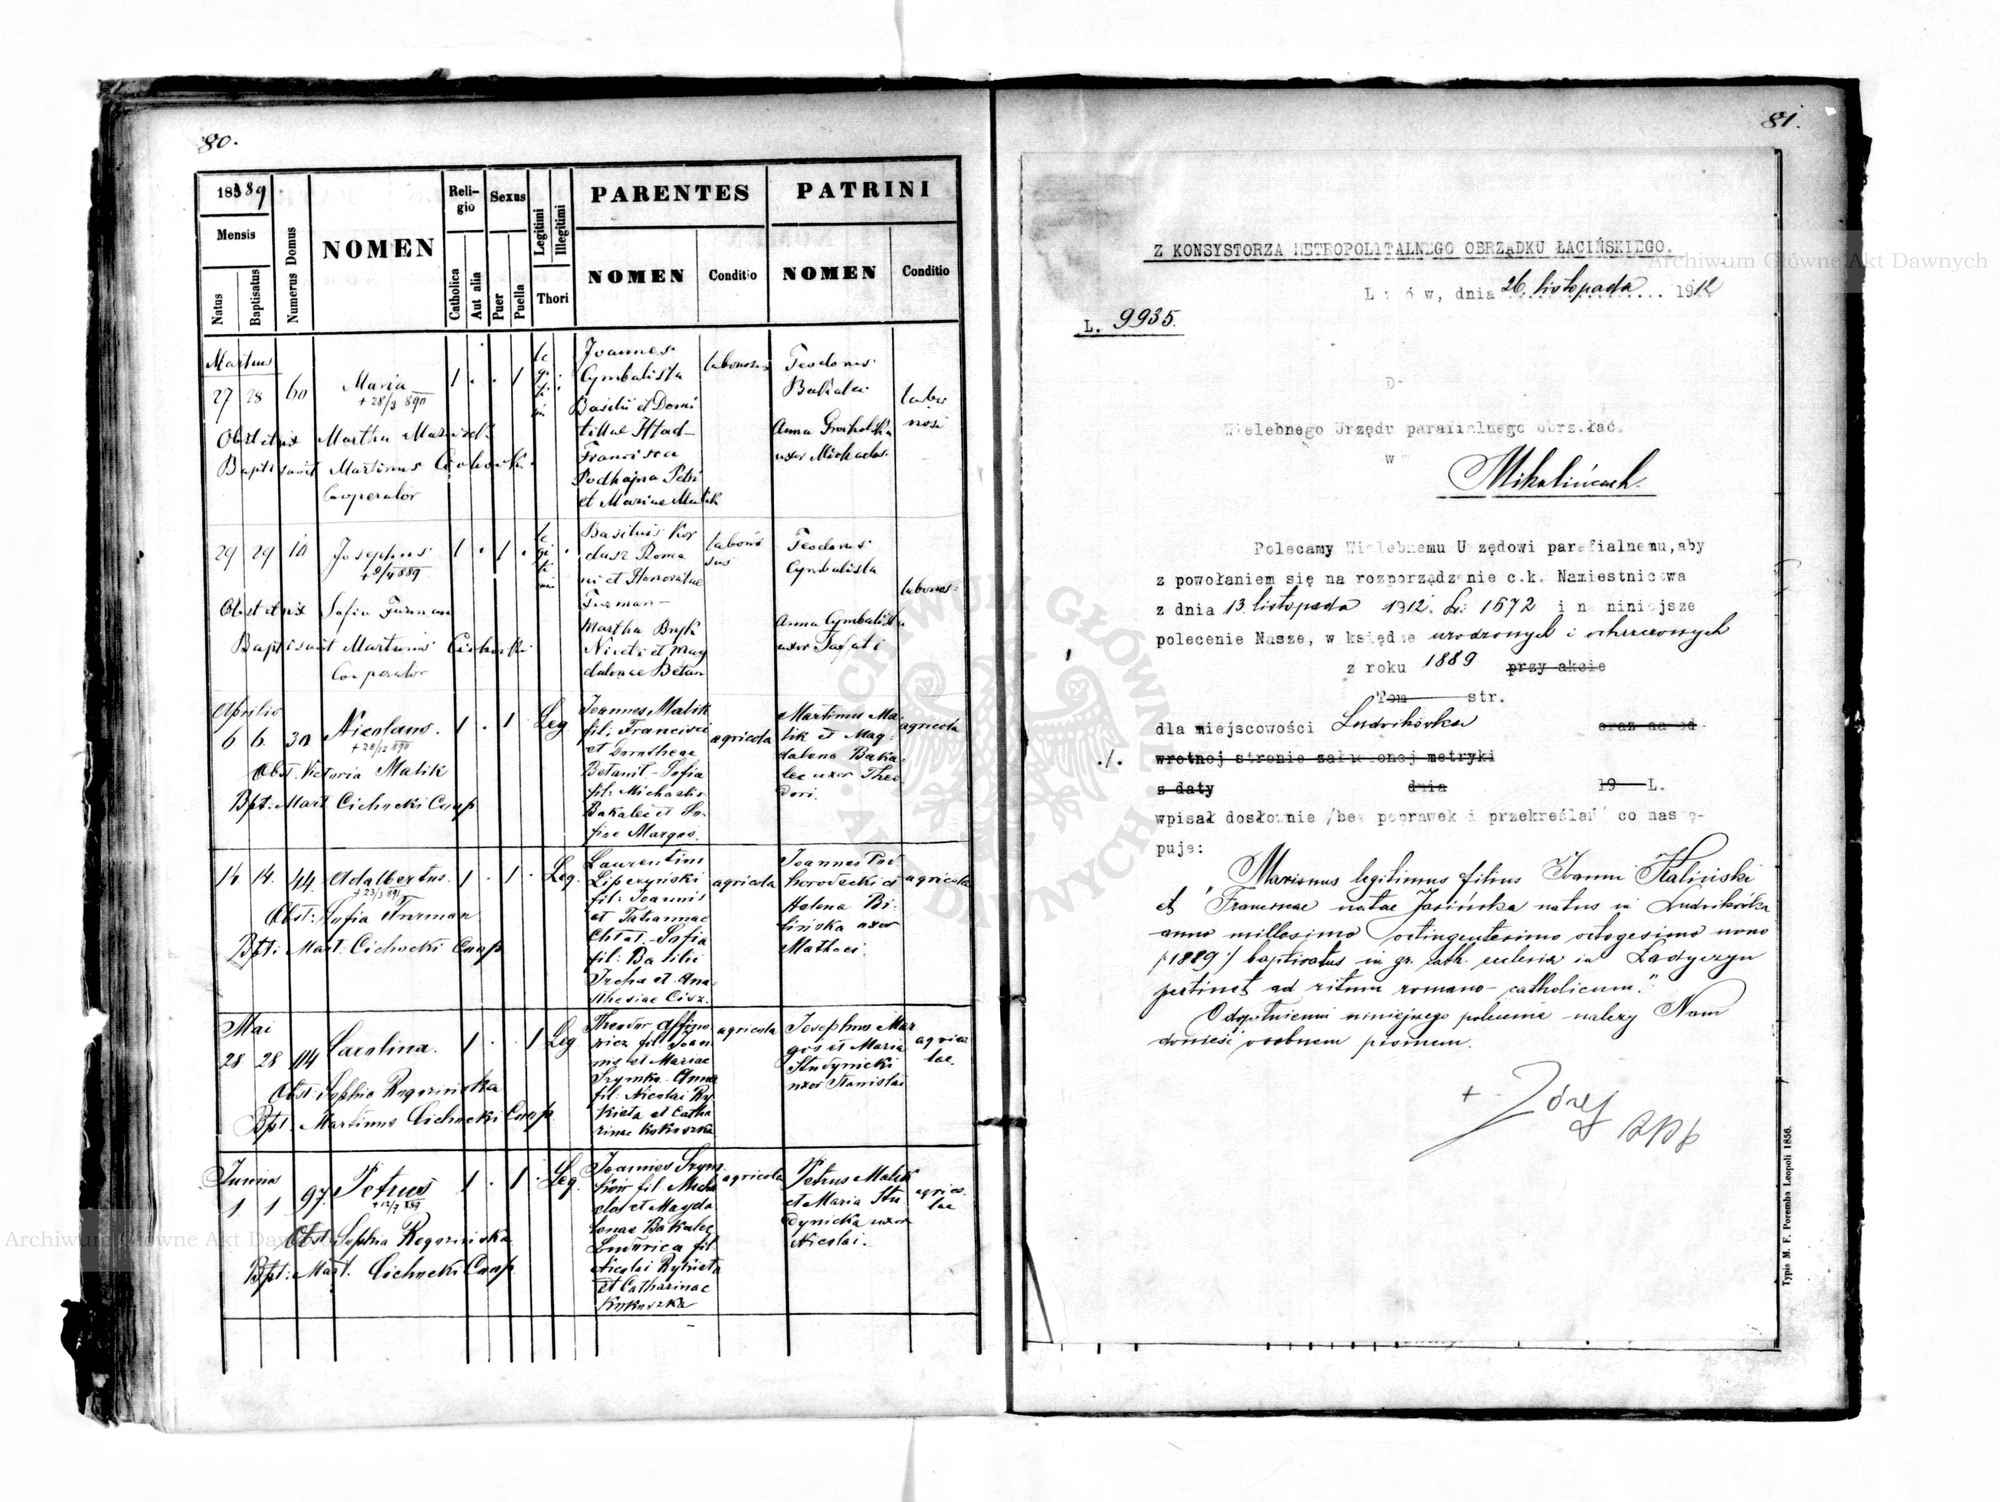 80.
1889
Mensis
Natus
Baptisatus
Numerus Domus
NOMEN
Religio
Catholica
Aut alia
Sexus
Puer
Puella
Legitimi
Illegitimi
Thori
PARENTES
NOMEN
Conditio
PATRINI
NOMEN
Conditio
Martius
27 28 60 Maria 1 . . 1
+ 28/3 890
Obstetrix Martha
Baptisavit Martinus Cichocki
Cooperator
Joannes
Cymbalista
Basilii et Domi
tillae
Francisca
Podhajna Petri
et Mariae Malik
Teodorus
Bakalec
Anna Grocholska
uxor Michaelis
labo
riosi
29 29 10 Josephus 1 . 1 .
+ 9/4 889
Obstetrix Sofia Furman
Baptisavit Martinus Cichocki
Cooperator
Basilius Kor
dasz Roma
ni et Honoratae
Furman –
Martha Bryk
Niceti et Mag
dalenae Betan
laborio
sus
Teodorus
Cymbalista
Anna Cymbalista
uxor
Aprilis
6 6 30 Nicolaus. 1 . 1 Leg
+ 28/12 890
Obst. Victoria Malik
Bpt: Mart Cichocki Coop
Joannes Malik
fil. Francisci
et Dorotheae
Betanit – Sofia
fil: Michaelis
Bakalec et So-
fiae Margos.
agricola
Martinus Ma-
lik et Mag-
dalena Baka-
lec uxor Theo
dori.
agricola
14 14. 44. Adalbertus. 1 . 1 . Leg.
+ 23/3 891
Obst: Sofia Furman
Bpt: Mart. Cichocki Coop
Laurentius
Lipczynski
fil: Joannis
et Tatiannae
Chtal – Sofia
fil: Basilii
Ircha et Ana-
sthesiae Cisz.
agricola
Joannes Pod
horodecki et
Helena Bi-
linska uxor
Mathaei.
agricola
Mai
28 28 104 Carolina. 1 . . 1 Leg
Obst: Sophia Rogozinska
Bpt. Martinus Cichocki Coop.
Theodor
fil. Joan
nis et Mariae
Szymko – Anna
fil: Nicolai Ry
kieta et Catha
rinae Kokoszka
agricola
Josephus Mar
gos et Maria
Studynicki
uxor Stanislai
agrico
lae.
Junius
1 1 97. Petrus 1 . 1 . Leg.
+ 12/7 889
Obst. Sophia Rogozinska
Bpt: Mart. Cichocki Coop.
Joannes Szym
ków fil Micha
elis et Magda
lenae Bakalec
Ludvica fil.
Nicolai Rykieta
et Catharinae
Kokoszka
agricola
Petrus Malik
et Maria Stu
dynicka uxor
Nicolai.
agrico-
lae
81.
Z KONSYSTORZA METROPOLITALNEGO OBRZĄDKU ŁACIŃSKIEGO.
Lwów, dnia 26. listopada 1912
L. 9935.
Do
Wielebnego Urzędu parafialnego obrz.łać.
w
Mikulińcach.
Polecamy Wielebnemu Urzędowi parafialnemu,aby
z powołaniem się na rozporządzenie c.k. Namiestnictwa
z dnia 13. listopada 1912. L: 1672 i na niniejsze
polecenie Nasze, w księdze urodzonych i ochrzczonych
z roku 1889 przy akcie
Tom str.
dla miejscowości Ludwikówka oraz na od-
./. wrotnej stronie załączonej metryki
z daty dnia 19 L.
wpisał dosłownie /bez poprawek i przekreślań/ co nastę-
puje:
"Marianus legitimus filius Joanni Kaliński
et Franciscae natae Jasińska natus in Ludwikówka
anno millesimo octingentesimo octogesimo nono
/:1889:/ baptisatus in gr. cath. ecclesia in Ładyczyn
pertinet ad ritum romano-catholicum."
O dopełnieniu niniejszego polecenia należy Nam
donieść osobnem pismem.
+ Józef
Typis M. F. Poremba Leopoli 1856.
ARCHIWUM GŁÓWNE AKT DAWNYCH
Archiwum Główne Akt Dawnych
Archiwum Główne Akt Dawnych